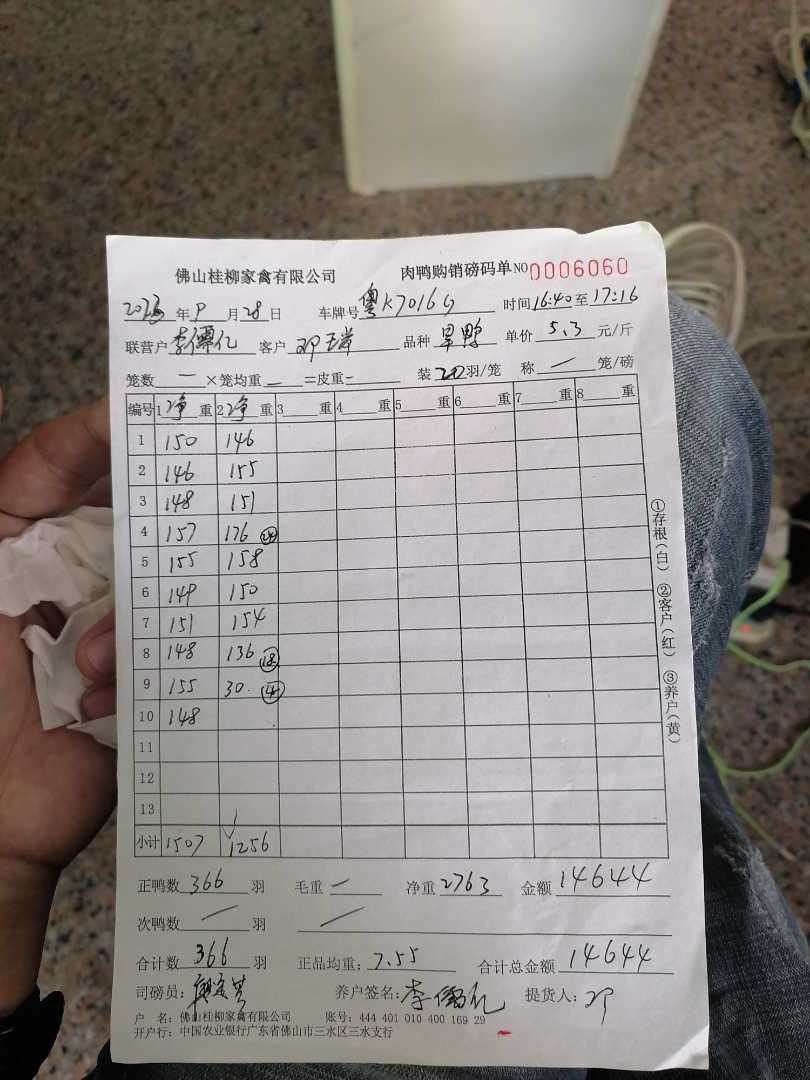 佛山桂柳家禽有限公司 肉鸭购销磅码单 NO 0006060
2023 年 9 月 28 日 车牌号 粤K7016G 时间 16:40 至 17:16
联营户 李儒亿 客户 邓 品种 旱鸭 单价 5.3 元/斤
笼数 — ×笼均重 — =皮重 — 装 20 羽/笼 称 — 笼/磅
编号 1 净 重 2 净 重 3 重 4 重 5 重 6 重 7 重 8 重
1 150 146
2 146 155
3 148 151
4 157 176
5 155 158
6 149 150
7 151 154
8 148 136 18
9 155 30. 4
10 148
11
12
13
小计 1507 1256
①存根(白) ②客户(红) ③养户(黄)
正鸭数 366 羽 毛重 — 净重 2763 金额 14644
次鸭数 — 羽 —
合计数 366 羽 正品均重: 7.55 合计总金额 14644
司磅员: 养户签名: 李儒亿 提货人: 邓
户 名: 佛山桂柳家禽有限公司 账号: 444 401 010 400 169 29
开户行: 中国农业银行广东省佛山市三水区三水支行